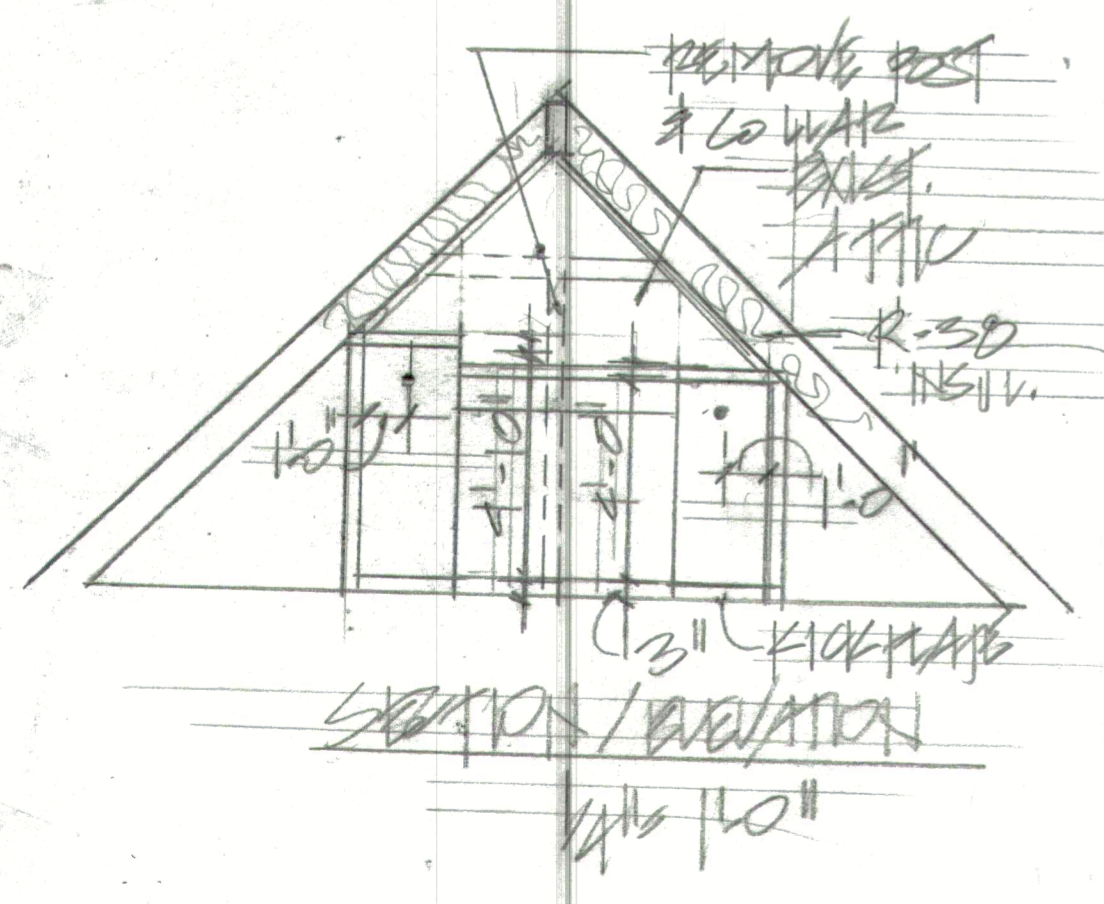 REMOVE POST
& COLLAR
EXIST.
ATTIC
R-38
INSUL.
1'-0"
4'-0"
4'-0"
1'-0"
3"
KICKPLATE
SECTION / ELEVATION
1/4" = 1'-0"